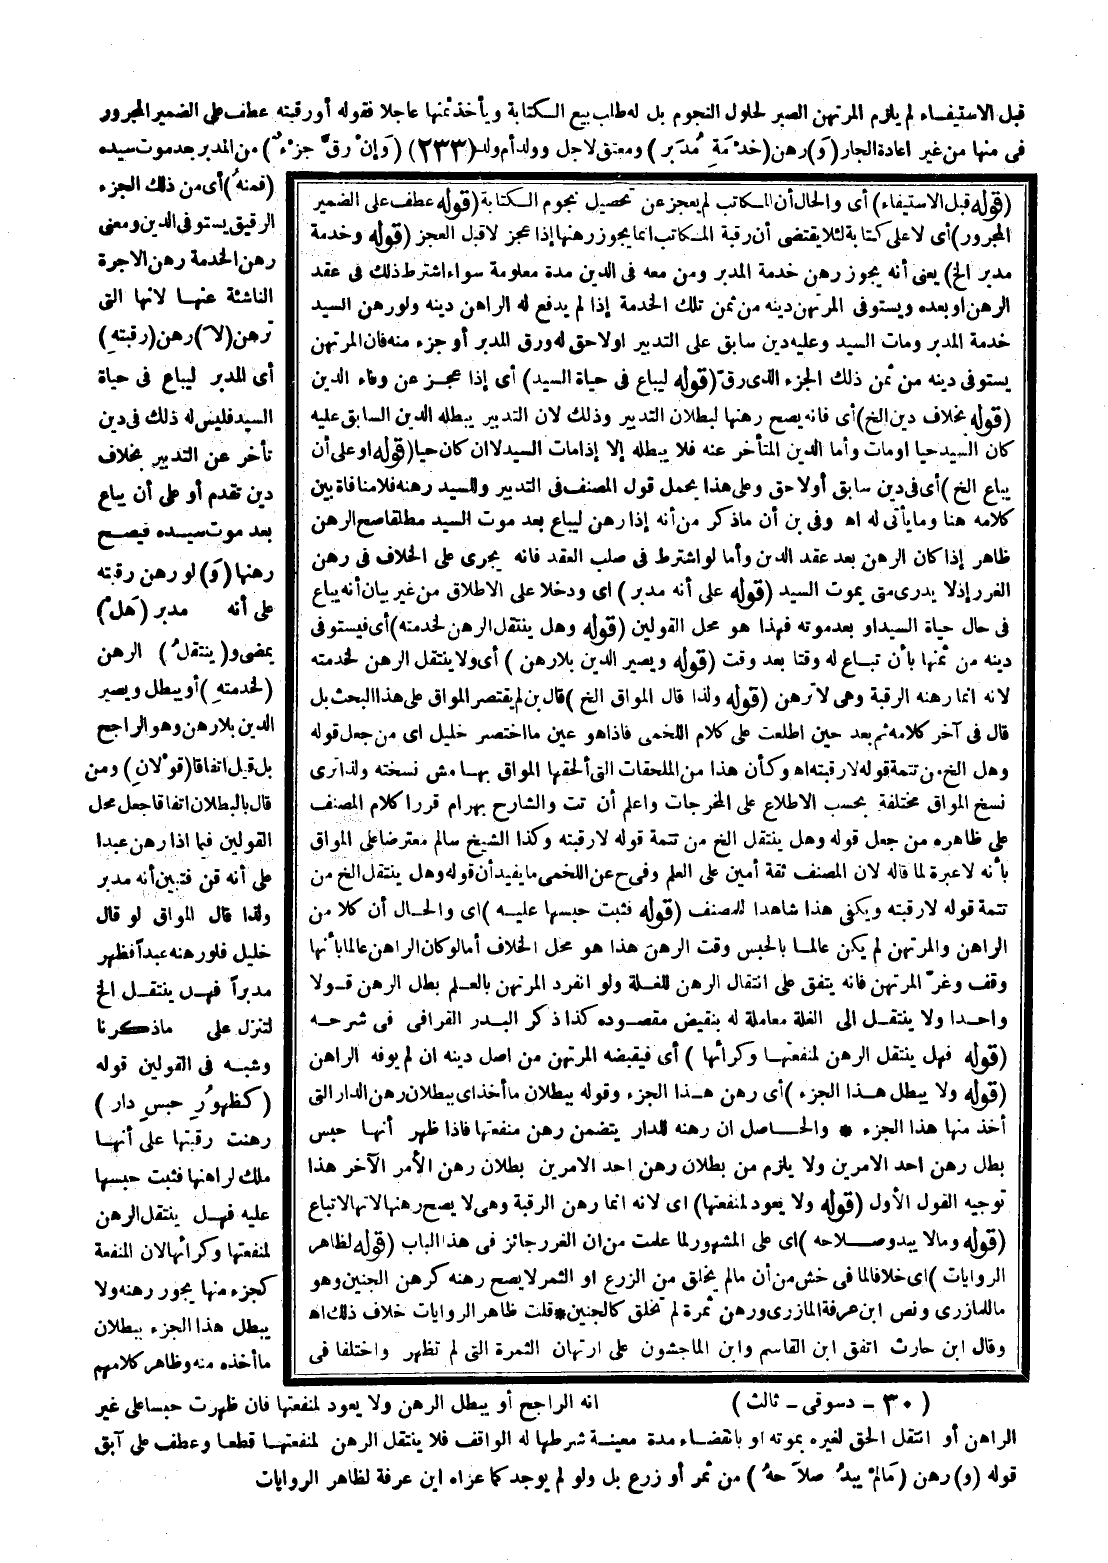 قبل الاستيفاء لم يلزم المرتهن الصبر لحلول النجوم بل له طلب بيع الكتابة ويأخذ ثمنها عاجلا فقوله أو رقبته عطف على الضمير المجرور
فى منها من غير اعادة الجار (وَ) رهن (خدْمَةِ مُدَبر) ومعتق لاجل وولد أم ولد (٢٣٣) (وَإنْ رقّ جزْءٌ) من المدبر بعد موت سيده
(فمنهُ) أى من ذلك الجزء
الرقيق يستوفى الدين ومعنى
رهن الخدمة رهن الاجرة
الناشئة عنها لانها التى
ترهن (لا) رهن (رقبتهِ)
أى المدبر ليباع فى حياة
السيد فليس له ذلك فى دين
تأخر عن التدبير بخلاف
دين تقدم أو على أن يباع
بعد موت سيده فيصح
رهنها (وَ) لو رهن رقبته
على أنه مدبر (هَلْ)
يمضى و (ينتقلُ) الرهن
(لخدمتهِ) أو يبطل ويصير
الدين بلا رهن وهو الراجح
بل قيل اتفاقا (قوْلانِ) ومن
قال بالبطلان اتفاقا جعل محل
القولين فيما اذا رهن عبدا
على أنه قن فتبين أنه مدبر
ولذا قال المواق لو قال
خليل فلو رهنه عبداً فظهر
مدبراً فهل ينتقل الخ
لتنزل على ماذكرنا
وشبه فى القولين قوله
(كظهورِ حبسِ دار)
رهنت رقبتها على أنها
ملك لراهنها فثبت حبسها
عليه فهل ينتقل الرهن
لمنفعتها وكرائها لان المنفعة
كجزء منها يجوز رهنه ولا
يبطل هذا الجزء ببطلان
ما أخذه منه وظاهر كلامهم
(قوله قبل الاستيفاء) أى والحال أن المكاتب لم يعجز عن تحصيل نجوم الكتابة (قوله عطف على الضمير
المجرور) أى لا على كتابة لئلا يقتضى أن رقبة المكاتب انما يجوز رهنها إذا عجز لا قبل العجز (قوله وخدمة
مدبر الخ) يعنى أنه يجوز رهن خدمة المدبر ومن معه فى الدين مدة معلومة سواء اشترط ذلك فى عقد
الرهن او بعده ويستوفى المرتهن دينه من ثمن تلك الخدمة إذا لم يدفع له الراهن دينه ولو رهن السيد
خدمة المدبر ومات السيد وعليه دين سابق على التدبير اولاحق له ورق المدبر أو جزء منه فان المرتهن
يستوفى دينه من ثمن ذلك الجزء الذى رقّ (قوله ليباع فى حياة السيد) أى إذا عجز عن وفاء الدين
(قوله بخلاف دين الخ) أى فانه يصح رهنها لبطلان التدبير وذلك لان التدبير يبطله الدين السابق عليه
كان السيد حيا اومات وأما الدين المتأخر عنه فلا يبطله إلا إذا مات السيد لا ان كان حيا (قوله او على أن
يباع الخ) أى فى دين سابق أولاحق وعلى هذا يحمل قول المصنف فى التدبير وللسيد رهنه فلا منافاة بين
كلامه هنا وما يأتى له اه وفى بن أن ماذكر من أنه إذا رهن ليباع بعد موت السيد مطلقا صح الرهن
ظاهر إذا كان الرهن بعد عقد الدين وأما لو اشترط فى صلب العقد فانه يجرى على الخلاف فى رهن
الغرر إذ لا يدرى متى يموت السيد (قوله على أنه مدبر) اى ودخلا على الاطلاق من غير بيان أنه يباع
فى حال حياة السيد او بعد موته فهذا هو محل القولين (قوله وهل ينتقل الرهن لخدمته) أى فيستوفى
دينه من ثمنها بأن تباع له وقتا بعد وقت (قوله ويصير الدين بلا رهن) أى ولا ينتقل الرهن لخدمته
لانه انما رهنه الرقبة وهى لا ترهن (قوله ولذا قال المواق الخ) قال بن لم يقتصر المواق على هذا البحث بل
قال فى آخر كلامه ثم بعد حين اطلعت على كلام اللخمى فاذا هو عين ما اختصر خليل اى من جعل قوله
وهل الخ من تتمة قوله لا رقبته اه وكأن هذا من الملحقات التى ألحقها المواق بهامش نسخته ولذا ترى
نسخ المواق مختلفة بحسب الاطلاع على المخرجات واعلم أن تت والشارح بهرام قررا كلام المصنف
على ظاهره من جعل قوله وهل ينتقل الخ من تتمة قوله لا رقبته وكذا الشيخ سالم معترضا على المواق
بأنه لا عبرة لما قاله لان المصنف ثقة أمين على العلم وفى ح عن اللخمى ما يفيد أن قوله وهل ينتقل الخ من
تتمة قوله لا رقبته ويكفى هذا شاهدا للمصنف (قوله فثبت حبسها عليه) اى والحال أن كلا من
الراهن والمرتهن لم يكن عالما بالحبس وقت الرهن هذا هو محل الخلاف أما لو كان الراهن عالما بأنها
وقف وغرّ المرتهن فانه يتفق على انتقال الرهن للغلة ولو انفرد المرتهن بالعلم بطل الرهن قولا
واحدا ولا ينتقل الى الغلة معاملة له بنقيض مقصوده كذا ذكر البدر القرافى فى شرحه
(قوله فهل ينتقل الرهن لمنفعتها وكرائها) أى فيقبضه المرتهن من اصل دينه ان لم يوفه الراهن
(قوله ولا يبطل هذا الجزء) أى رهن هذا الجزء وقوله ببطلان ما أخذ اى ببطلان رهن الدار التى
أخذ منها هذا الجزء * والحاصل ان رهنه للدار يتضمن رهن منفعتها فاذا ظهر أنها حبس
بطل رهن احد الامرين ولا يلزم من بطلان رهن احد الامرين بطلان رهن الأمر الآخر هذا
توجيه القول الأول (قوله ولا يعود لمنفعتها) اى لانه انما رهن الرقبة وهى لا يصح رهنها لانها لا تباع
(قوله وما لا يبدو صلاحه) اى على المشهور لما علمت من ان الغرر جائز فى هذا الباب (قوله لظاهر
الروايات) اى خلافا لما فى خش من أن مالم يخلق من الزرع او الثمر لا يصح رهنه كرهن الجنين وهو
ما للمازرى ونص ابن عرفة المازرى ورهن ثمرة لم تخلق كالجنين * قلت ظاهر الروايات خلاف ذلك اه
وقال ابن حارث اتفق ابن القاسم وابن الماجشون على ارتهان الثمرة التى لم تظهر واختلفا فى
(٣٠ - دسوقى - ثالث) انه الراجح أو يبطل الرهن ولا يعود لمنفعتها فان ظهرت حبسا على غير
الراهن أو انتقل الحق لغيره بموته او بانقضاء مدة معينة شرطها له الواقف فلا ينتقل الرهن لمنفعتها قطعا وعطف على آبق
قوله (و) رهن (مَالمْ يبدُ صلاَحهُ) من ثمر أو زرع بل ولو لم يوجد كما عزاه ابن عرفة لظاهر الروايات